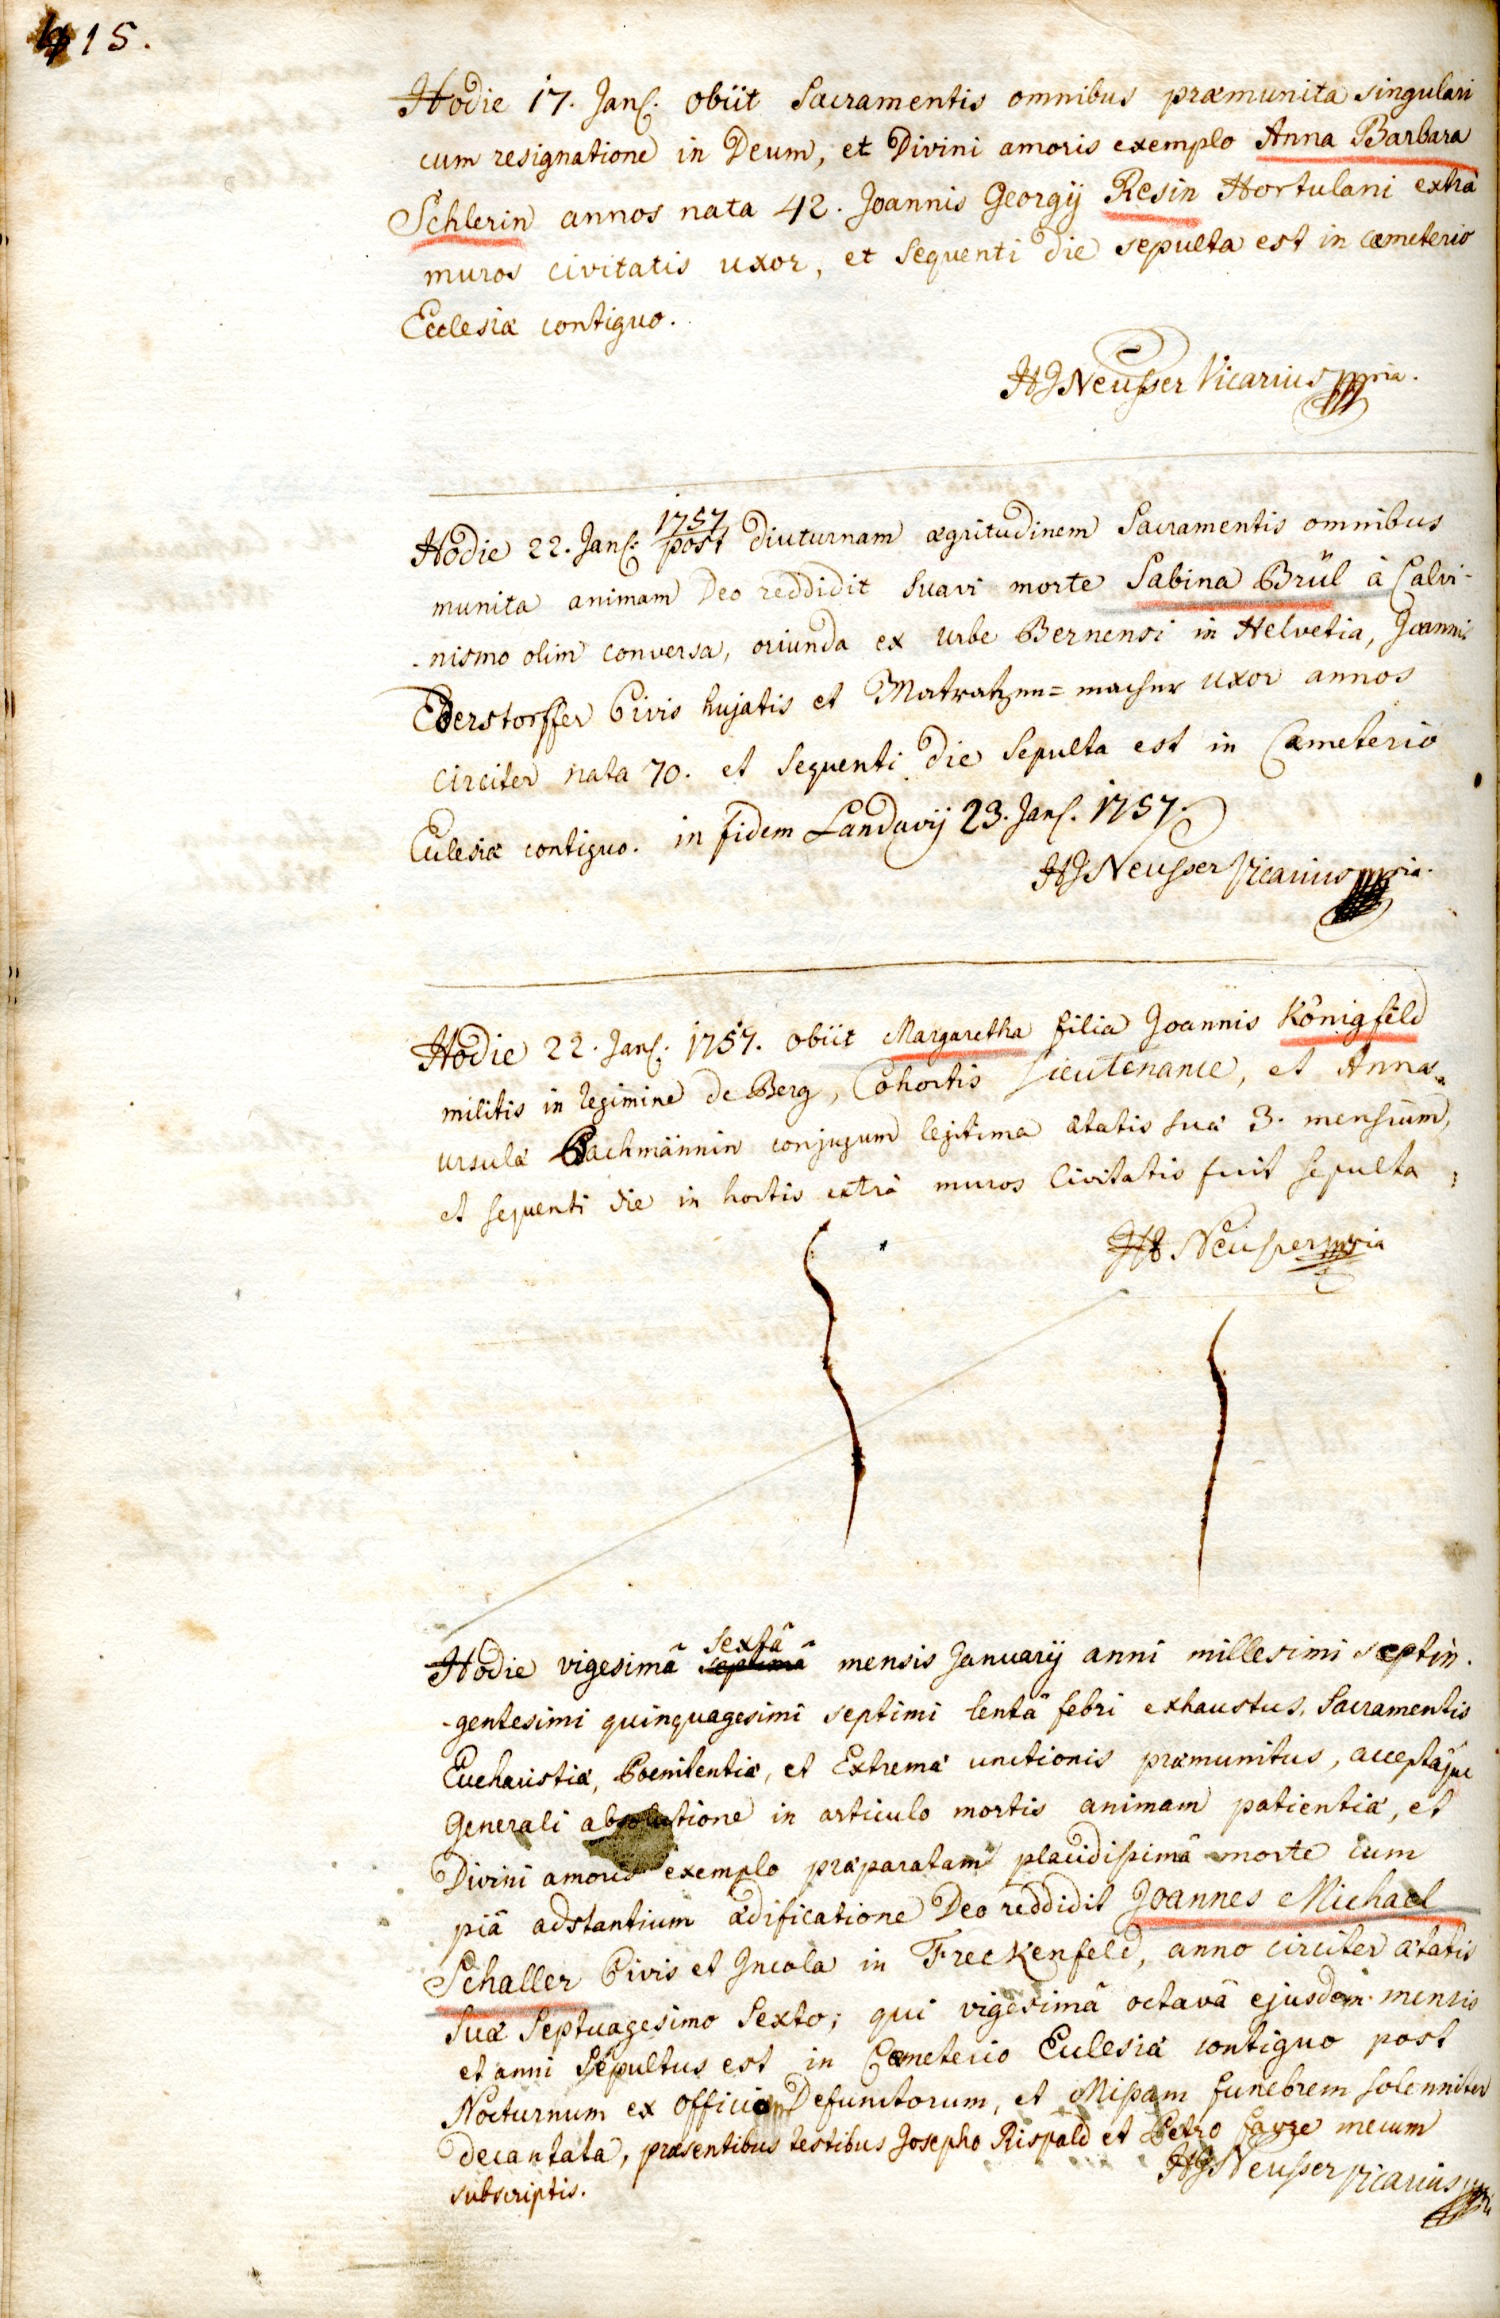 415.
Hodie 17. Janr. obiit Sacramentis omnibus præmunita singulari
cum resignatione in Deum, et Divini amoris exemplo Anna Barbara
Schlerin annos nata 42. Joannis Georgij Resin Hortulani extrà
muros civitatis uxor, et sequenti die sepulta est in cæmeterio
Ecclesiæ contiguo.
HJNeusser Vicarius mpria.
1757
Hodie 22. Janr. post diuturnam ægritudinem Sacramentis omnibus
munita animam Deo reddidit suavi morte Sabina Brül à Calvi-
-nismo olim conversa, oriunda ex urbe Bernensi in Helvetia, Joannis
Ederstorffer Civis hujatis et Matratzen=macher uxor annos
circiter nata 70. et sequenti die sepulta est in Cæmeterio
Ecclesiæ contiguo. in fidem Landavij 23. Janr. 1757.
HJNeusser Vicarius mpria.
Hodie 22. Janr. 1757. obiit Margaretha filia Joannis Königfeld
militis in regimine de Berg, Cohortis Lieutenance, et Anna
ursulæ Bachmännin conjugum legitima ætatis suæ 3. mensium,
et sequenti die in hortis extrà muros Civitatis fuit sepulta
HJ Neusser mpria
sextâ
Hodie vigesimâ septimâ mensis Januarij anni millesimi septin-
-gentesimi quinquagesimi septimi lentâ febri exhaustus, Sacramentis
Eucharistiæ, Poenitentiæ, et Extremæ unctionis præmunitus, acceptâque
Generali absolutione in articulo mortis animam patientiæ, et
Divini amoris exemplo præparatam placidissimâ morte cum
piâ adstantium ædificatione Deo reddidit Joannes Michael
Schaller Civis et Incola in Freckenfeld, anno circiter ætatis
suæ Septuagesimo Sexto; qui vigesimâ octavâ ejusdem mensis
et anni Sepultus est in Cæmeterio Ecclesiæ contiguo post
Nocturnum ex officio Defunctorum, et Missam funebrem solenniter
decantata, præsentibus testibus Josepho Rispald et Petro Favre mecum
subscriptis.
HJNeusser Vicarius